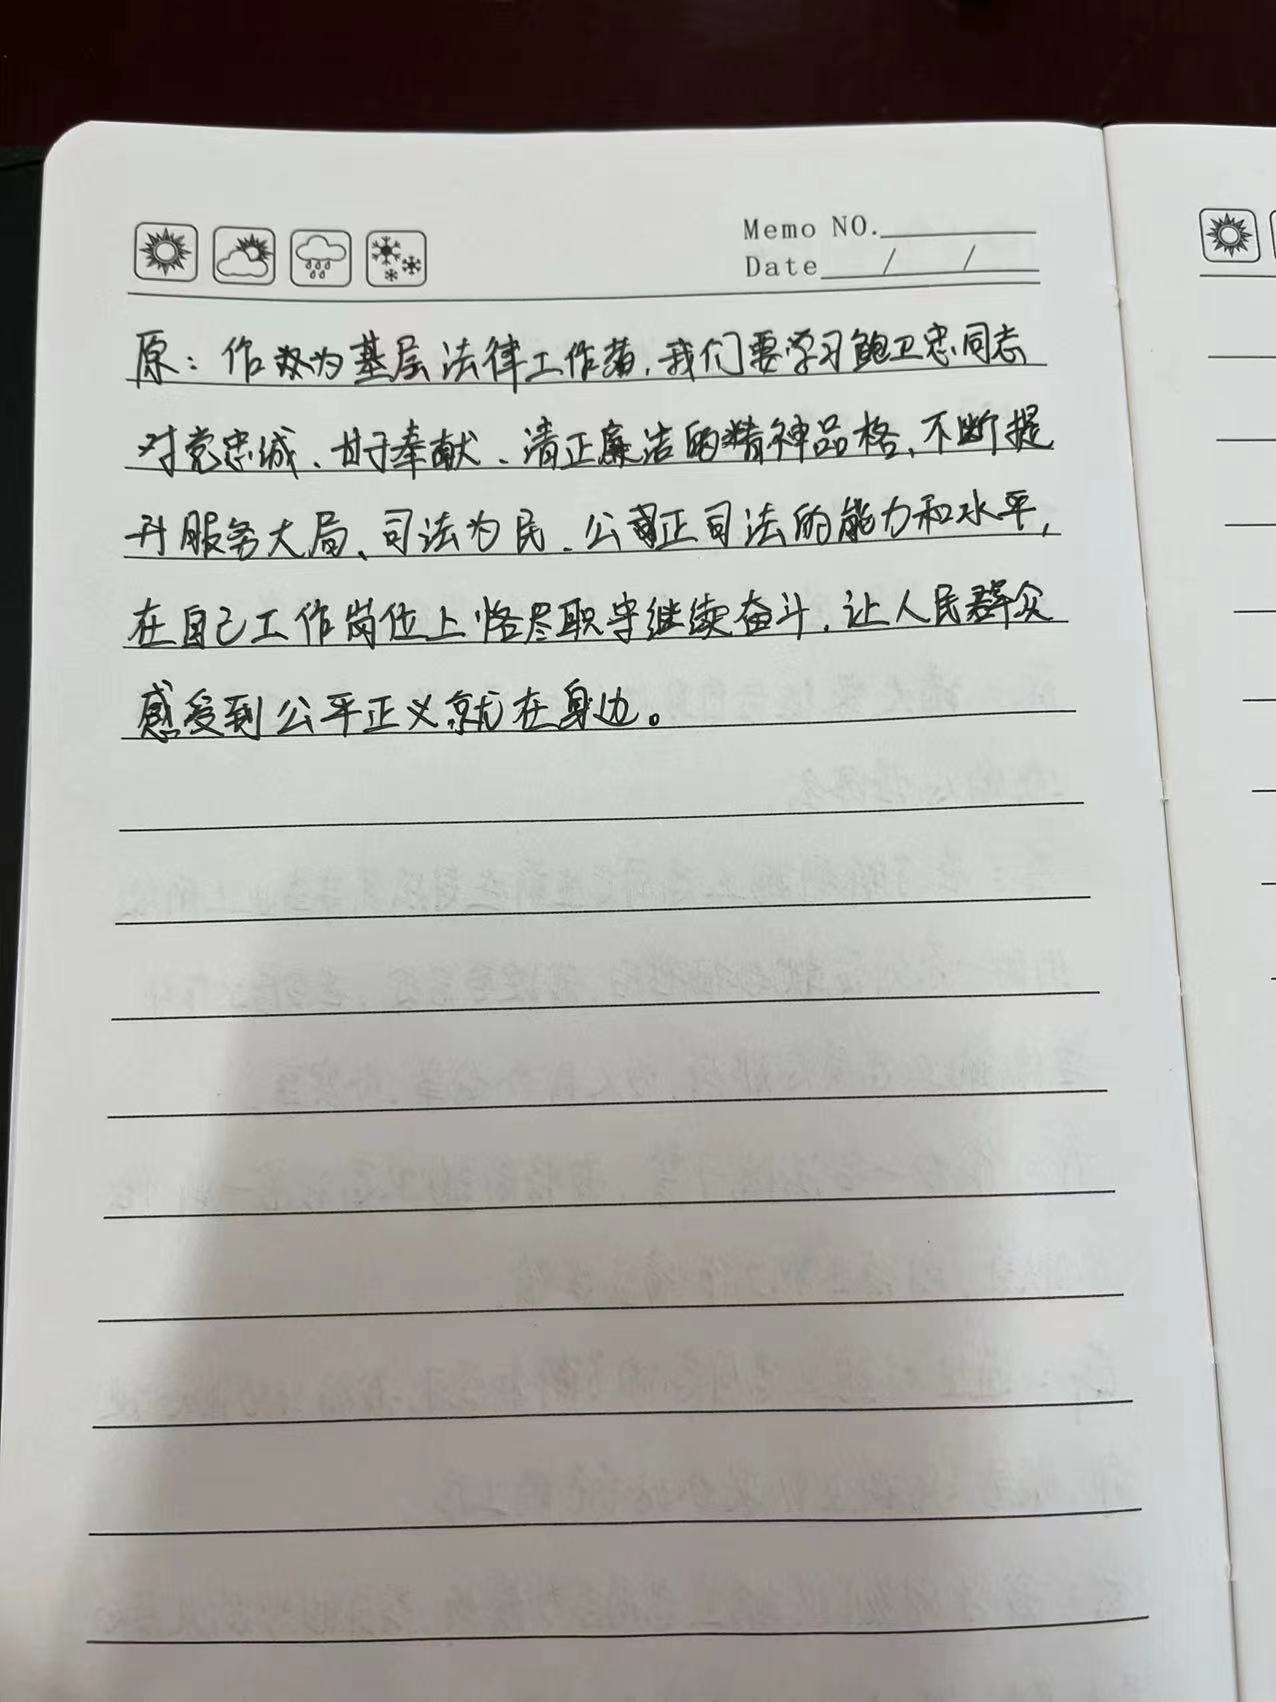 Memo NO.
Date / /
原：作为基层法律工作者，我们要学习鲍卫忠同志
对党忠诚、甘于奉献、清正廉洁的精神品格，不断提
升服务大局、司法为民、公正司法的能力和水平，
在自己工作岗位上恪尽职守继续奋斗，让人民群众
感受到公平正义就在身边。